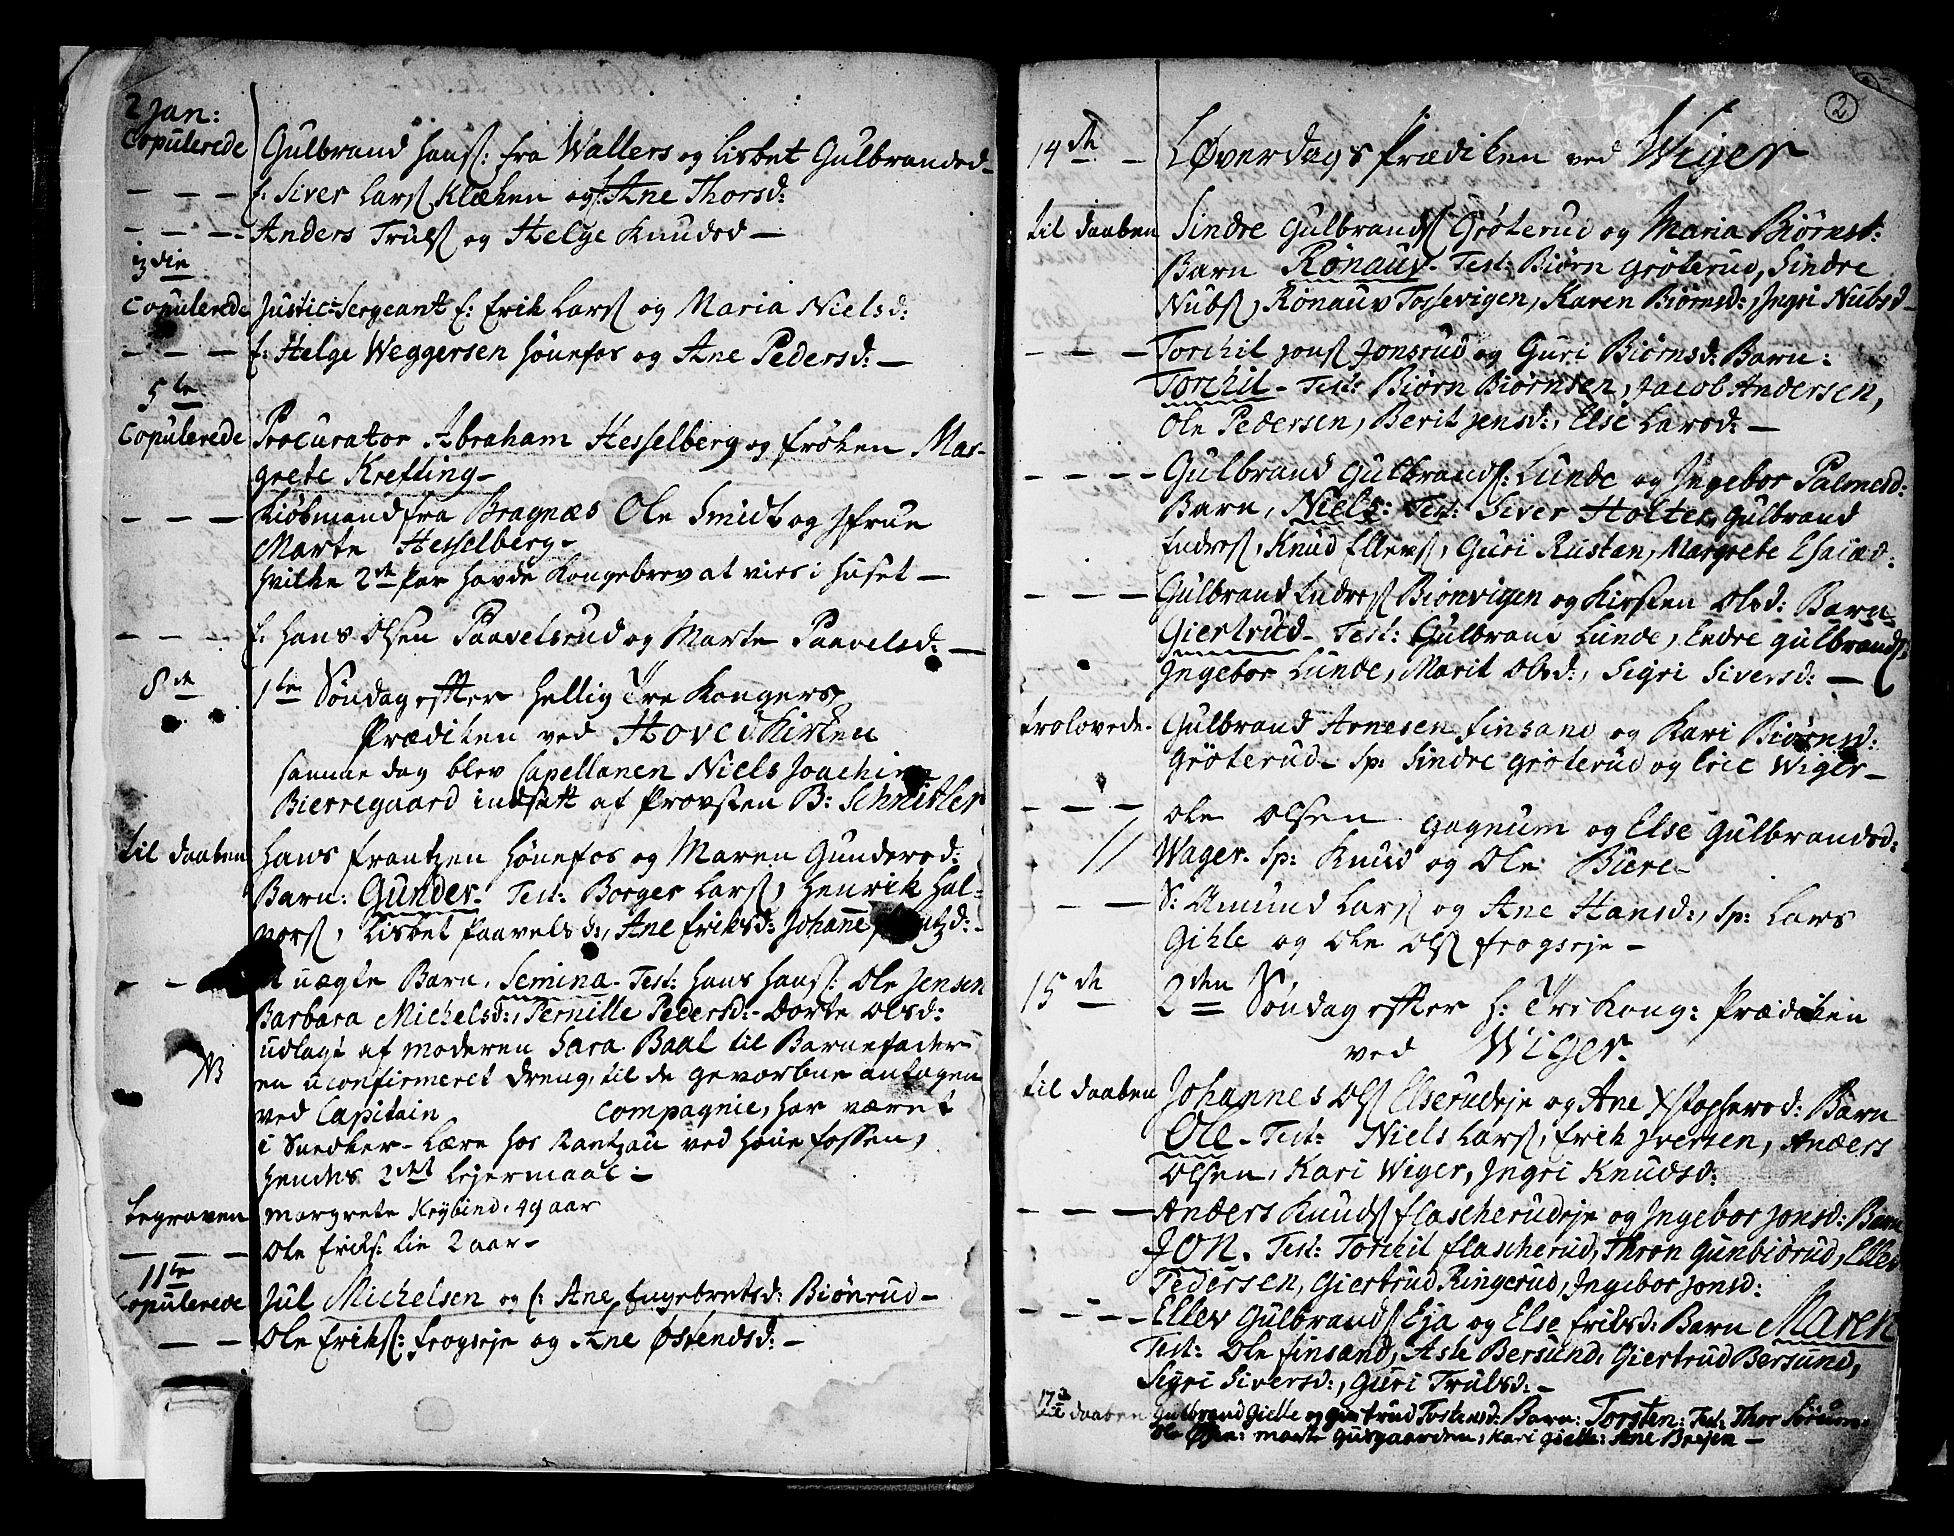 2 Jan:
Copulerede Gulbrand Hanss: fra Wallers og Lisbet Gulbrandsd
– – – S: Siver Larss Klækken og S: Ane Thorsd:
– – – Anders Trulss og Helge Knudsd –
3die
Copulerede Justic-Sergeant S: Erik Larss og Maria Nielsd:
– – – S: Helge Weggersen Hönefos og Ane Pedersd: –
5te
Copulerede Procurator Abraham Hesselberg og Fröken Mar-
grete Krefting –
– – – Kiöbmand fra Bragnæs Ole Smidt og Jfrue
Marte Hesselberg –
hvilke 2de Par havde Kongebrev at vies i Huset –
– – – S: Hans Olsen Paavelsrud og Marte Paavelsd: –
8de 1te Söndag effter Hellig Tre Konger
Prædiken ved Hoved Kirken
samme dag blev Capellanen Niels Joachim
Bierregaard indsatt af Provsten B: Schnitler
til daaben Hans Frantzen Hönefos og Maren Gundersd:
Barn: Gunder. Test: Borger Larss, Henrik Hal-
vorss, Lisbet Paavelsd:, Ane Eriksd: Johanne
– – uægte Barn, Semina – Test: Hans Hanss: Ole Jensen
Barbara Michelsd:, Pernille Pedersd: – Dorte Olsd:
udlagt af moderen Sara Baal til Barnefader
en uconfirmeret Dreng, til de gevorbne antagen
ved Capitain Compagnie, har været
i Snedker-Lære hos Rantzau ved Hönefossen,
hendes 2det Lejermaal –
begraven Margrete Krybind, 49 aar
– – – Ole Eriks: Lie 2 aar –
11te
Copulerede Jul Michelsen og S: Ane Engebretsd: Biönrud –
– – Ole Erikss: Frogseje og Ane Østensd: –
2
14de – Løverdags Prædiken ved Wiger
til daaben Sindre Gulbrandss Gröterud og Maria Biörnsd:
Barn Rönauv – Test: Biörn Gröterud, Sindre
Nubss, Rönauv Tossevigen, Karen Biörnsd:, Ingri Nubsd –
– – – Torchil Jonss Jonsrud og Guri Biörnsd: Barn:
Torchil – Test: Biörn Biörnsen, Jacob Andersen,
Ole Pedersen, Berit Jensd:, Else Larsd: –
– – – – Gulbrand Gulbrandss: Lunde og Ingebor Palmesd:
Barn, Niels: Test: Siver Holte, Gulbrand
Endress, Knud Ellevss, Guri Rustan, Margrete Esaiæd:
– – – Gulbrand Endress Biönvigen og Kirsten Olsd: Barn
Giertrud – Test: Gulbrand Lunde, Endre Gulbrandss,
Ingebor Lunde, Marit Olsd:, Sigri Siversd: –
trolovede – Gulbrand Arnesen Finsand og Kari Biörnsd:
Gröterud – Sp: Sindre Gröterud og Eric Wiger –
– – – Ole Olsen Gagnum og Else Gulbrandsd:
Wager. Sp: Knud og Ole Biere –
– – – S: Amund Larss og Ane Hansd:, Sp: Lars
Gihle og Ole Olss Frogseje –
15de 2den Söndag effter H: Tre Kong: Prædiken
ved Wiger.
til daaben Johannes Olss Elserudeje og Ane Xstophersd: Barn
Ole – Test: Niels Larss, Erik Iversen, Anders
Olsen, Kari Wiger, Ingri Knudsd:
– – – Anders Knudss Flascherudeje og Ingebor Jonsd: Barn
Jon. Test: Torchil Flascherud, Thron Gunbiörud, Ellev
Pedersen, Giertrud Ringerud, Ingebor Jonsd:
– – – – Ellev Gulbrandss Eja og Else Eriksd: Barn Maren
Test: Ole Finsand, Asle Bersund, Giertrud Bersund,
Sigri Siversd:, Guri Trulsd: –
17de
til daaben Gulbrand Gielle og Giertrud Torstensd: Barn: Torsten: Test: Thor
Ole marte Gusgaarden, Kari Gielle: Ane